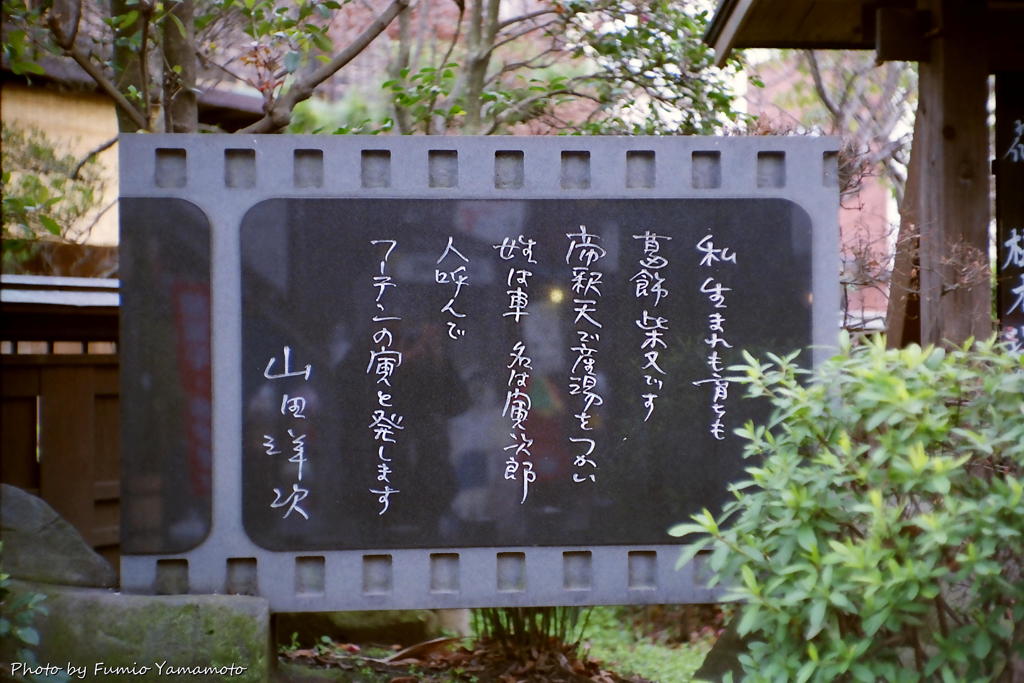 私 生まれも育ちも
葛飾 柴又です
帝釈天で産湯をつかい
姓は車 名は寅次郎
人呼んで
フーテンの寅と発します
山田洋次
Photo by Fumio Yamamoto